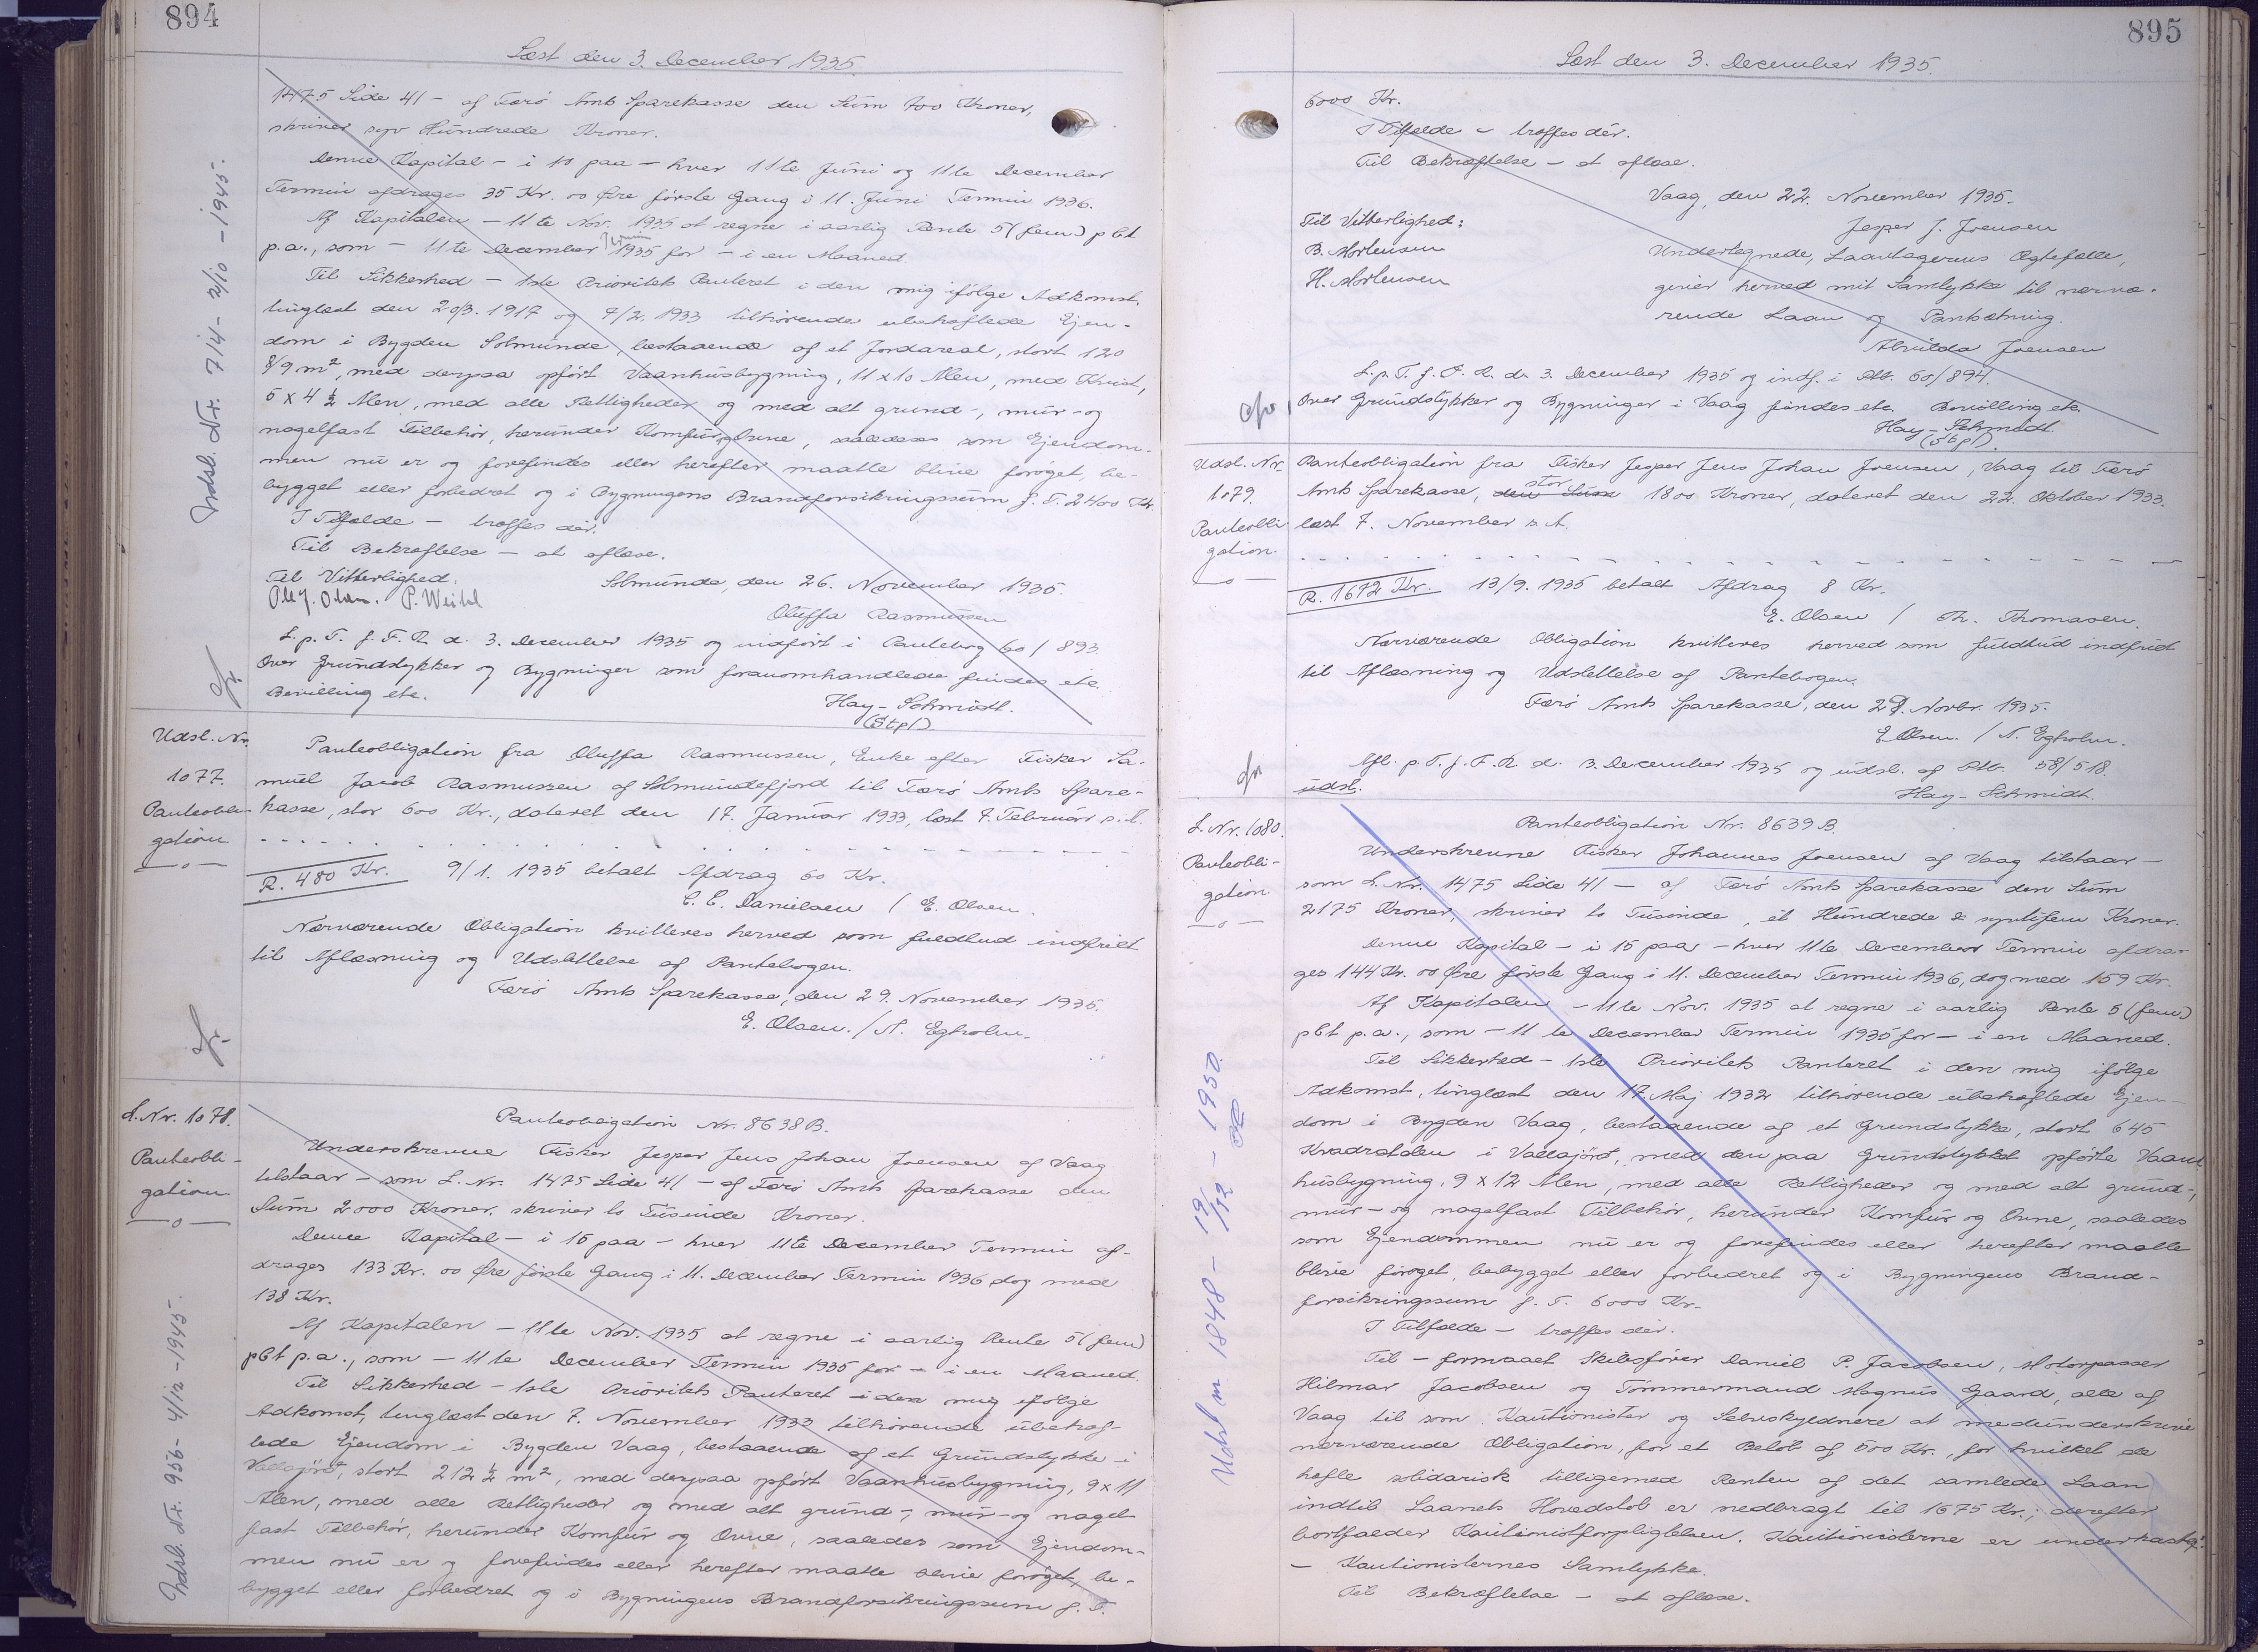 894
Læst den 3. December 1935.
1475 Side 41 - af Færö Amts Sparekasse den Sum 700 Kroner,
skriver syv Hundrede Kroner.
Denne Kapital - i 10 paa - hver 11te Juni og 11te December
Termin afdrages 35 Kr. 00 Øre förste Gang i 11. Juni Termin 1936.
Af Kapitalen - 11te Nov. 1935 at regne i aarlig Rente 5 (fem) pCt
p.a., som - 11te December Termin 1935 for - i en Maaned.
Til Sikkerhed - 1ste Prioritets Panteret i den mig ifölge Adkomst,
tinglæst den 20/3. 1917 og 7/2. 1933 tilhörende ubehæftede Ejen-
dom i Bygden Solmunde, bestaaende af et Jordareal, stort 120
8/9 m², med derpaa opfört Vaanhusbygning, 11 x 10 Alen, med Kvist,
5 x 4 ½ Alen, med alle Rettigheder og med alt grund-, mur- og
nagelfast Tilbehör, herunder Komfur og Ovne, saaledes som Ejendom-
men nu er og forefindes eller herefter maatte blive foröget, be-
bygget eller forbedret og i Bygningens Brandforsikringssum f. T. 2400 Kr.
I Tilfælde - træffes dér.
Til Bekræftelse - at aflæse.
Til Vitterlighed: Solmunde, den 26. November 1935.
Ole J. Olsen. P. Weihl
Oluffa Rasmussen
L. p. T. f. F. R. d. 3. December 1935 og indfört i Pantebog 60 / 893
Over Grundstykker og Bygninger som foranomhandlede findes etc.
Bevilling etc.
Hay-Schmidt.
(Stpl)
Indsl. Nr. 714 - 2/10 - 1945.
Udsl. Nr.
1077.
Panteobli-
gation
Panteobligation fra Oluffa Rasmussen, Enke efter Fisker Sa-
muel Jacob Rasmussen af Solmundefjord til Færö Amts Spare-
kasse, stor 600 Kr., dateret den 17. Januar 1933, læst 7. Februar s. A.
R. 480 Kr. 9/1. 1935 betalt Afdrag 60 Kr.
C. C. Danielsen / E. Olsen.
Nærværende Obligation kvitteres herved som fuldtud indfriet
til Aflæsning og Udslettelse af Pantebogen.
Færö Amts Sparekasse, den 29. November 1935.
E. Olsen. / N. Egholm.
L. Nr. 1078.
Panteobli-
gation
Panteobligation Nr. 8638 B.
Underskrevne Fisker Jesper Jens Johan Joensen af Vaag
tilstaar - som L. Nr. 1475 Side 41 - af Færö Amts Sparekasse den
Sum 2000 Kroner, skriver to Tusinde Kroner.
Denne Kapital - i 15 paa - hver 11te December Termin af-
drages 133 Kr. 00 Øre förste Gang i 11. December Termin 1936 dog med
138 Kr.
Af Kapitalen - 11te Nov. 1935 at regne i aarlig Rente 5 (fem)
pCt p.a., som - 11te December Termin 1935 for - i en Maaned.
Til Sikkerhed - 1ste Prioritets Panteret i den mig ifölge
Adkomst, tinglæst den 7. November 1933 tilhörende ubehæf-
tede Ejendom i Bygden Vaag, bestaaende af et Grundstykke i
Vallajörd, stort 212 ½ m², med derpaa opfört Vaanhusbygning, 9 x 11
Alen, med alle Rettigheder og med alt grund-, mur- og nagel-
fast Tilbehör, herunder Komfur og Ovne, saaledes som Ejendom-
men nu er og forefindes eller herefter maatte blive foröget, be-
bygget eller forbedret og i Bygningens Brandforsikringssum f. T.
Indsl. Nr. 956 - 4/12 - 1945.
895
Læst den 3. December 1935.
6000 Kr.
I Tilfælde - træffes dér.
Til Bekræftelse - at aflæse.
Vaag, den 22. November 1935.
Til Vitterlighed: Jesper J. Joensen
B. Mortensen Undertegnede, Laantagerens Ægtefælle,
H. Mortensen giver herved mit Samtykke til nærvæ-
rende Laan og Pantsætning.
Alvilda Joensen
L. p. T. f. F. R. d. 3. December 1935 og indf. i Ptb. 60/894.
Over Grundstykker og Bygninger i Vaag findes etc. Bevilling etc.
Hay-Schmidt.
(Stpl).
Udsl. Nr.
1079.
Panteobli-
gation.
Panteobligation fra Fisker Jesper Jens Johan Joensen, Vaag til Færö
Amts Sparekasse, den Sum stor 1800 Kroner, dateret den 22. Oktober 1933.
læst 7. November s. A.
R. 1672 Kr. 13/9. 1935 betalt Afdrag 8 Kr.
E. Olsen / Th. Thomasen.
Nærværende Obligation kvitteres herved som fuldtud indfriet
til Aflæsning og Udslettelse af Pantebogen.
Færö Amts Sparekasse, den 29. Novbr. 1935.
E. Olsen. / N. Egholm.
Afl. p. T. f. F. R. d. 3. December 1935 og udsl. af Ptb. 58/518.
udsl. Hay-Schmidt.
L. Nr. 1080.
Panteobli-
gation
Panteobligation Nr. 8639 B.
Underskrevne Fisker Johannes Joensen af Vaag tilstaar -
som L. Nr. 1475 Side 41 - af Færö Amts Sparekasse den Sum
2175 Kroner, skriver to Tusinde, ét Hundrede & syvtifem Kroner.
Denne Kapital - i 15 paa - hver 11te December Termin afdra-
ges 144 Kr. 00 Øre förste Gang i 11. December Termin 1936, dog med 159 Kr.
Af Kapitalen - 11te Nov. 1935 at regne i aarlig Rente 5 (fem)
pCt p.a., som - 11te December Termin 1935 for - i en Maaned.
Til Sikkerhed - 1ste Prioritets Panteret i den mig ifölge
Adkomst, tinglæst den 17. Maj 1932 tilhörende ubehæftede Ejen-
dom i Bygden Vaag, bestaaende af et Grundstykke, stort 645
Kvadratalen i Vallajörd, med den paa Grundstykket opförte Vaan-
husbygning, 9 x 12 Alen, med alle Rettigheder og med alt grund-,
mur- og nagelfast Tilbehör, herunder Komfur og Ovne, saaledes
som Ejendommen nu er og forefindes eller herefter maatte
blive foröget, bebygget eller forbedret og i Bygningens Brand-
forsikringssum f. T. 6000 Kr.
I Tilfælde - træffes dér.
Til - formaaet Skibsförer Daniel P. Jacobsen, Motorpasser
Hilmar Jacobsen og Tömmermand Magnus Gaard, alle af
Vaag til som Kautionister og Selvskyldnere at medunderskrive
nærværende Obligation, for et Belöb af 500 Kr., for hvilket de
hæfte solidarisk tilligemed Renten af det samlede Laan
indtil Laanets Hovedstol er nedbragt til 1675 Kr.; derefter
bortfalder Kautionistforpligtelsen. Kautionisterne er underkastet
- Kautionisternes Samtykke.
Til Bekræftelse - at aflæse.
Udsl nr 1848 - 19/12 - 1950.